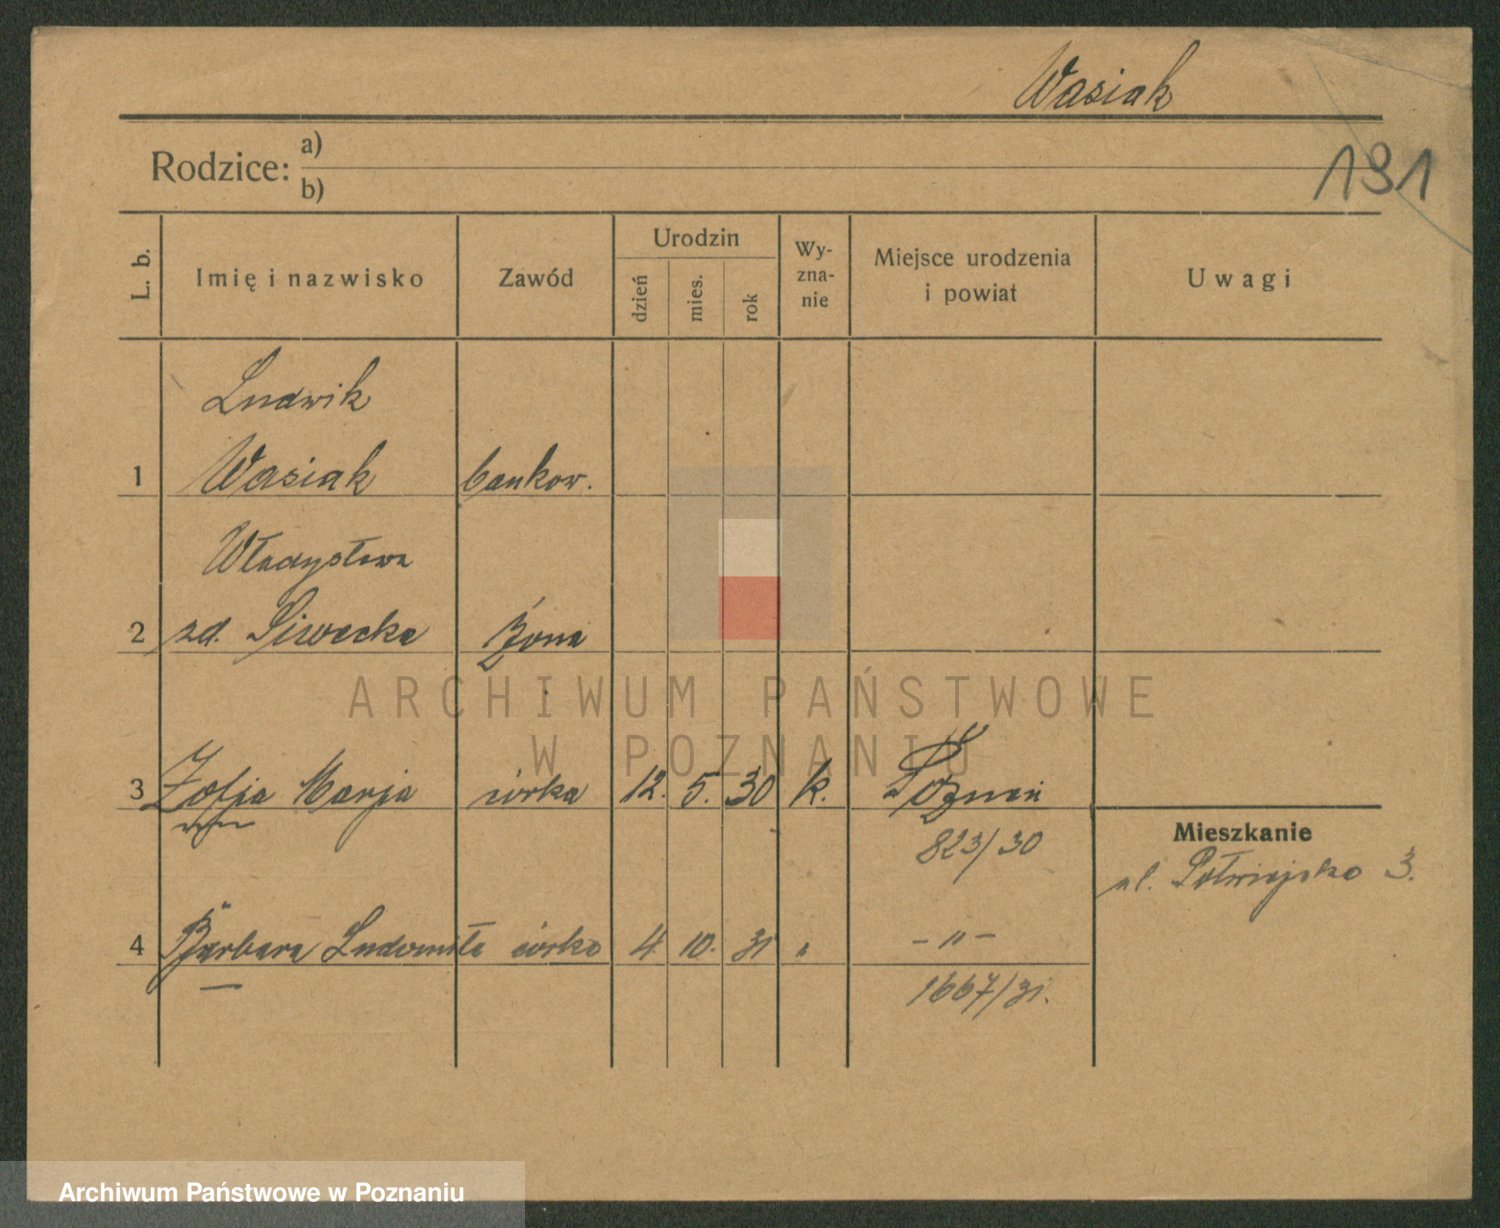 Wasiak
Rodzice: a)
b)
191
L. b.
Imię i nazwisko
Zawód
Urodzin
dzień
mies.
rok
Wy-
zna-
nie
Miejsce urodzenia
i powiat
Uwagi
Ludwik
1 Wasiak bankow.
Władysława
2 zd. Siwecka żona
ARCHIWUM PAŃSTWOWE
W POZNANIU
3 Zofja Marja córka 12. 5. 30 k. Poznań
823/30
Mieszkanie
ul. Półwiejska 3.
4 Barbara Ludomiła córka 4 10. 31 " - " -
1667/31.
Archiwum Państwowe w Poznaniu